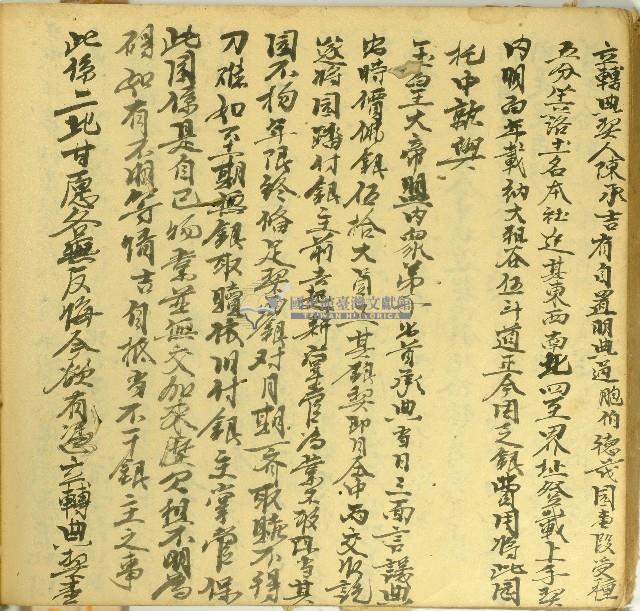 立轉典契人陳承吉有自置明典過胞伯德茂園壹段受種
五分坐落土名本社近其東西南北四至界址登載上手契
內明白年載納大租谷伍斗道正今因乏銀費用將此園
托中就與
玉皇大帝盟內眾弟出首承典當日三面言議典
出時價佛銀伍拾大員其銀契即日仝中兩交收訖
遂將園踏付銀主前去起耕掌管為業不敢阻當其
園不拘年限終備足契面銀對月期一齊取贖不得
刁難如至期無銀取贖依舊付銀主掌管保
此園係是自己物業並無交加來歷欠租不明為
碍如有不明等情吉自抵當不干銀主之事
此係二比甘愿各無反悔今欲有憑立轉典契壹
國史館臺灣文獻館
TAIWAN HISTORICA